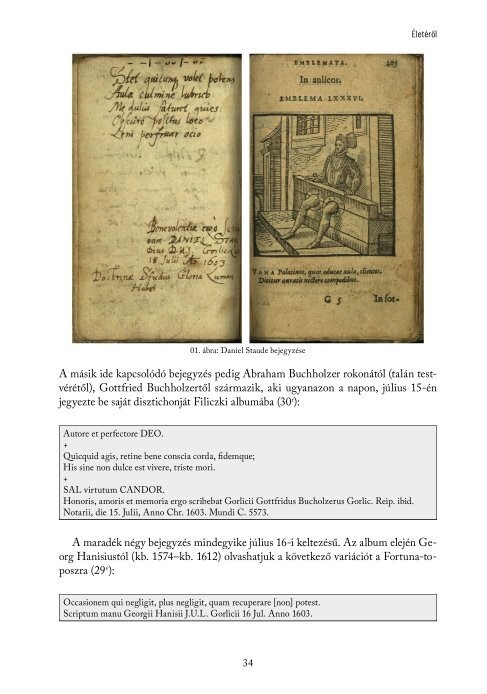 Életéről
Stet quicunq volet potens
Aulæ culmine lubrico
Me dulcis saturet quies:
Obscuro positus loco
Leni perfruar ocio
DANIEL
18 Julii Ao 1603
Gloria
Habet.
EMBLEMATA. 305
In aulicos.
EMBLEMA LXXXVI.
VANA Palatinos, quos educat aula, clientes.
Dicitur auratis nectere compedibus.
G 5 In for-
01. ábra: Daniel Staude bejegyzése
A másik ide kapcsolódó bejegyzés pedig Abraham Buchholzer rokonától (talán test-
vérétől), Gottfried Buchholzertől származik, aki ugyanazon a napon, július 15-én
jegyezte be saját disztichonját Filiczki albumába (30ʳ):
Autore et perfectore DEO.
+
Quicquid agis, retine bene conscia corda, fidemque;
His sine non dulce est vivere, triste mori.
+
SAL virtutum CANDOR.
Honoris, amoris et memoria ergo scribebat Gorlicii Gottfridus Bucholzerus Gorlic. Reip. ibid.
Notarii, die 15. Julii, Anno Chr. 1603. Mundi C. 5573.
A maradék négy bejegyzés mindegyike július 16-i keltezésű. Az album elején Ge-
org Hanisiustól (kb. 1574–kb. 1612) olvashatjuk a következő variációt a Fortuna-to-
poszra (29ᵛ):
Occasionem qui negligit, plus negligit, quam recuperare [non] potest.
Scriptum manu Georgii Hanisii J.U.L. Gorlicii 16 Jul. Anno 1603.
34